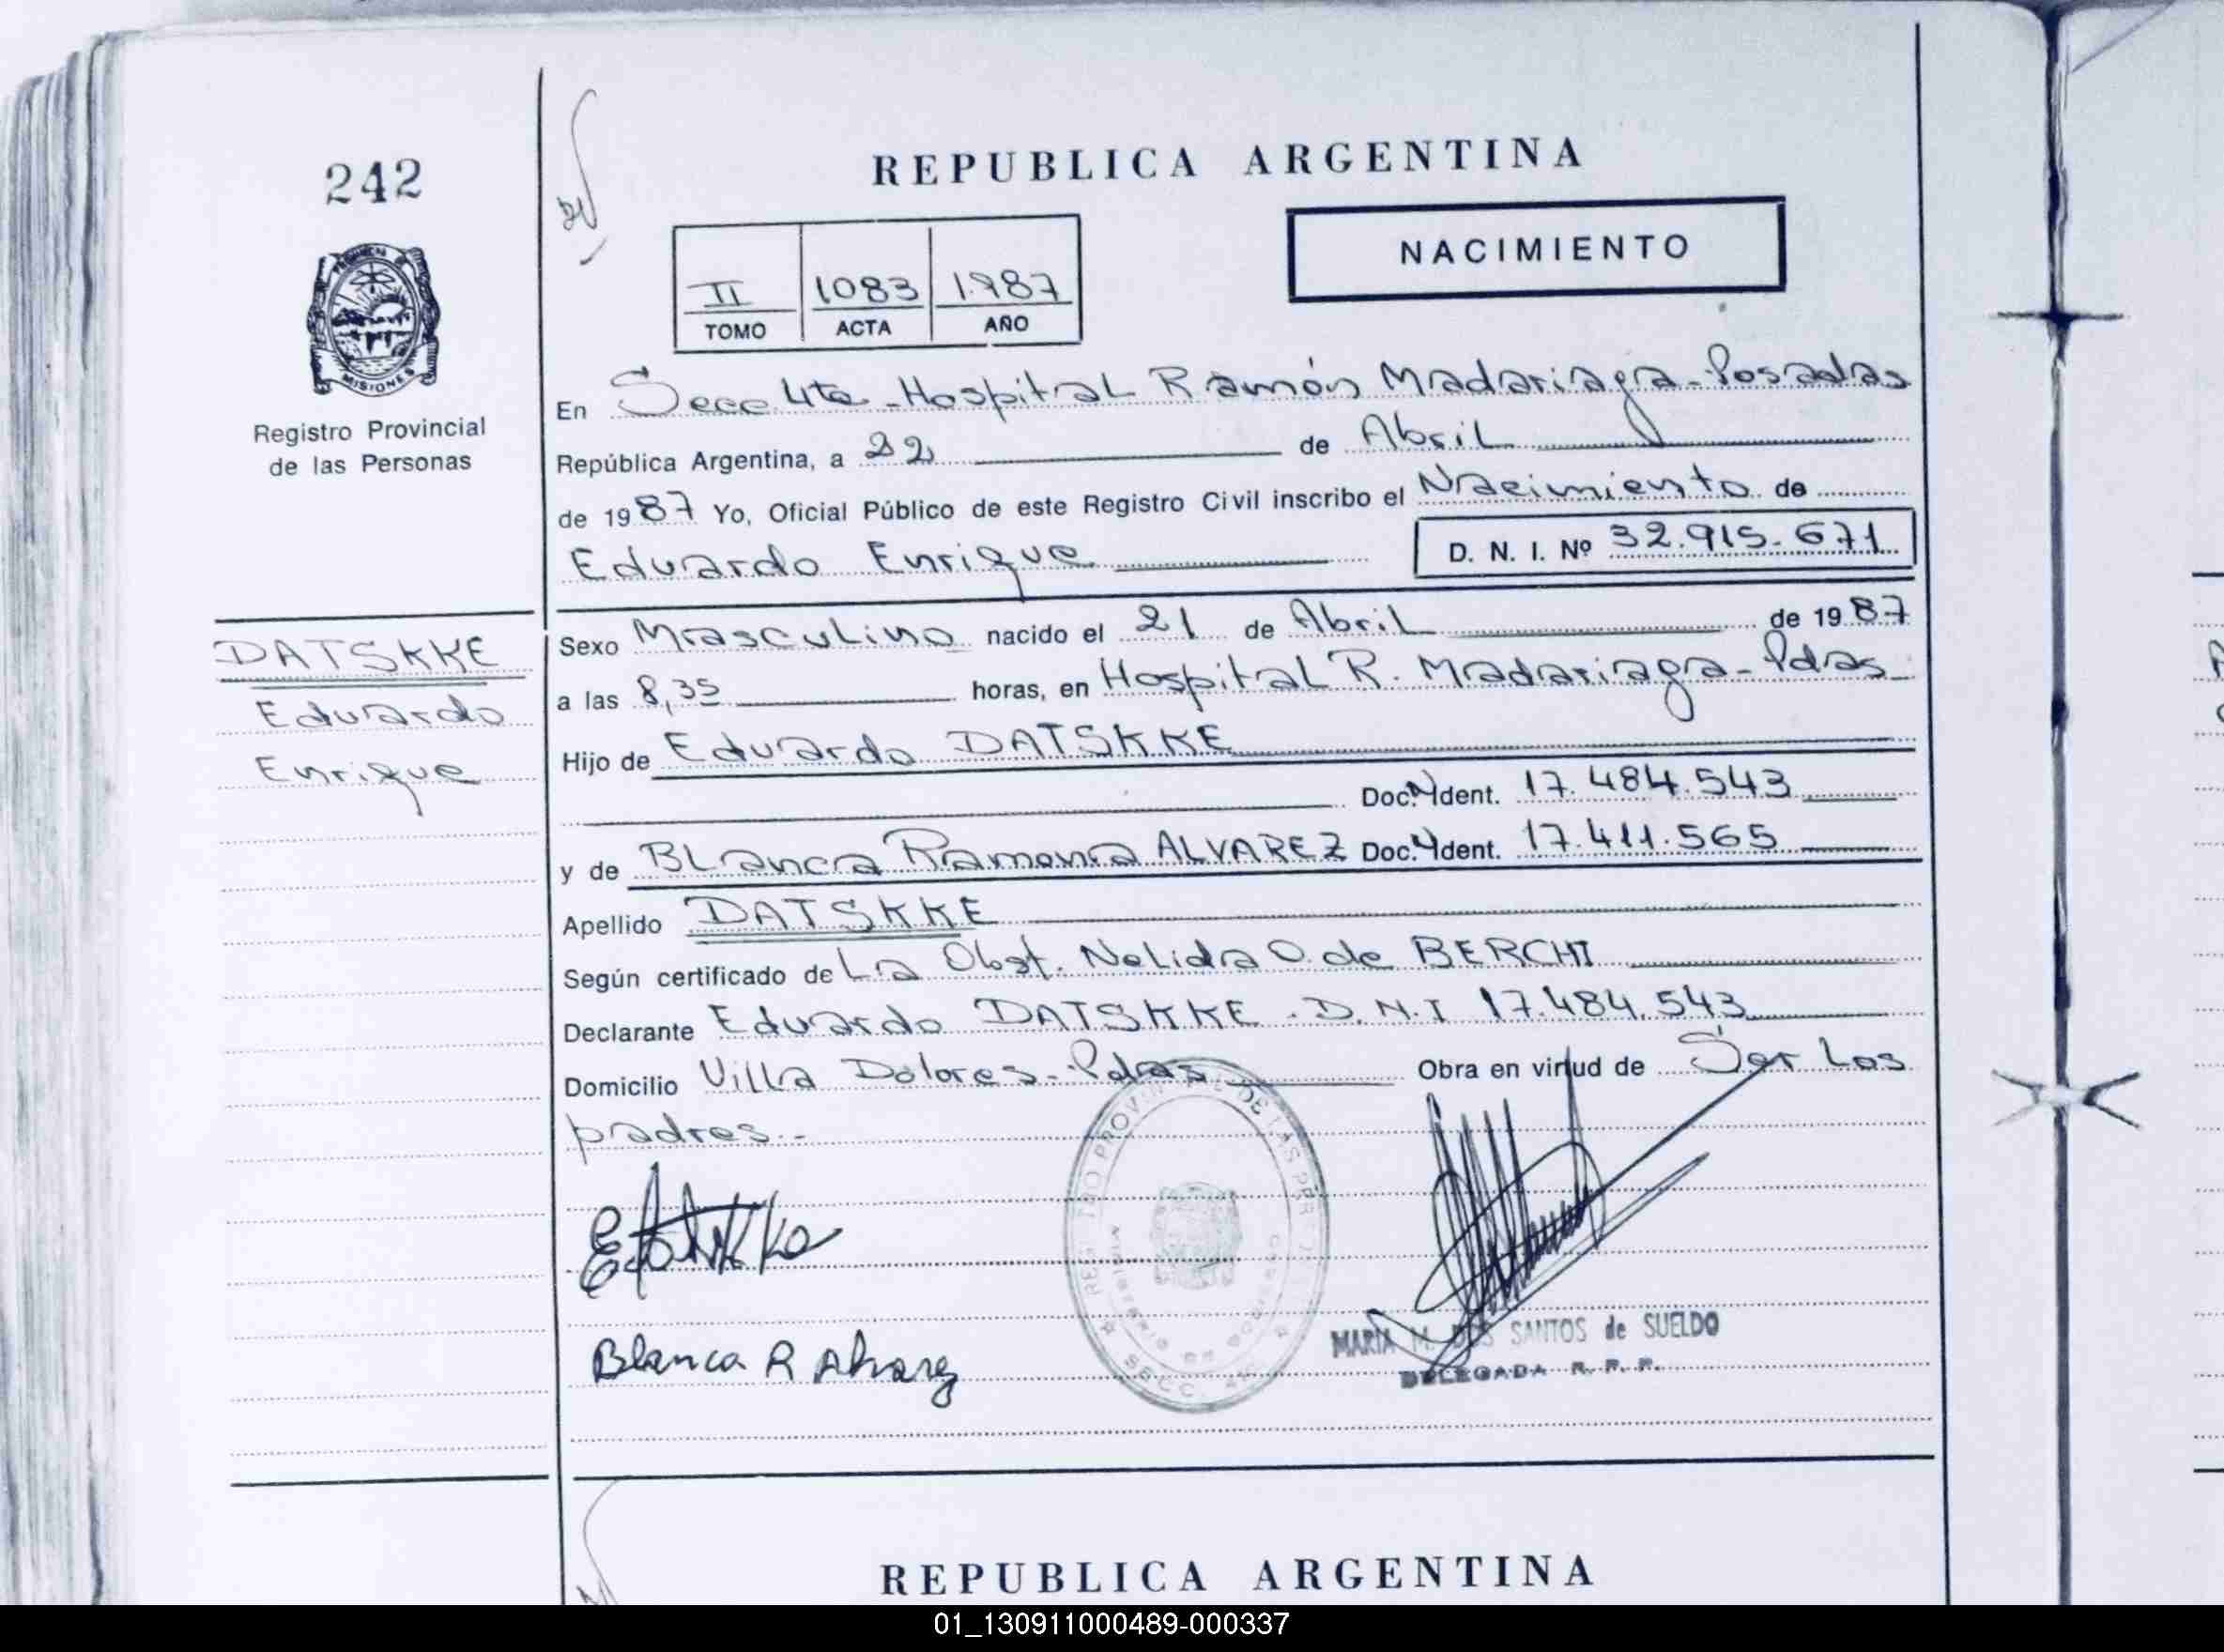 242
REPUBLICA ARGENTINA
NACIMIENTO
II 1083 1.987
TOMO ACTA AÑO
MISIONES
Registro Provincial
de las Personas
En Secc 4ta - Hospital Ramón Madariaga - Posadas
República Argentina, a 22 de Abril
de 1987 Yo, Oficial Público de este Registro Civil inscribo el Nacimiento de
Eduardo Enrique D. N. I. Nº 32.915.671
DATSKKE
Eduardo
Enrique
Sexo Masculino nacido el 21 de Abril de 1987
a las 8,35 horas, en Hospital R. Madariaga - Pdas
Hijo de Eduardo DATSKKE
Doc. Ident. 17.484.543
y de Blanca Ramona ALVAREZ Doc. Ident. 17.411.565
Apellido DATSKKE
Según certificado de La Obst. Nelida O. de BERCHI
Declarante Eduardo DATSKKE - D.N.I 17.484.543
Domicilio Villa Dolores - Pdas Obra en virtud de Ser Los
padres.-
Blanca R Alvarez
MARIA M. DOS SANTOS de SUELDO
DELEGADA R. P. P.
REPUBLICA ARGENTINA
01_130911000489-000337